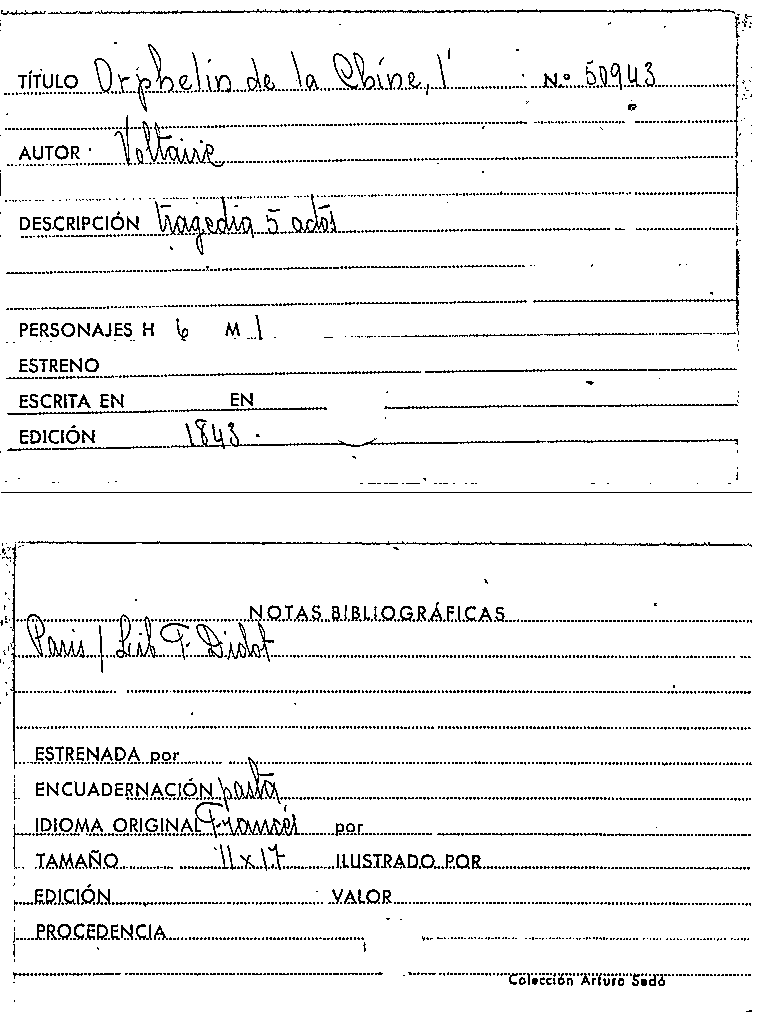 TÍTULO Orphelin de la Chine, l' Nº 50943
AUTOR Voltaire
DESCRIPCIÓN tragedia 5 actos
PERSONAJES H 6 M 1
ESTRENO
ESCRITA EN EN
EDICIÓN 1843.
NOTAS BIBLIOGRÁFICAS
Paris / Lib F. Didot
ESTRENADA por
ENCUADERNACIÓN pasta
IDIOMA ORIGINAL Francés por
TAMAÑO 11x17 ILUSTRADO POR
EDICIÓN VALOR
PROCEDENCIA
Colección Arturo Sedó